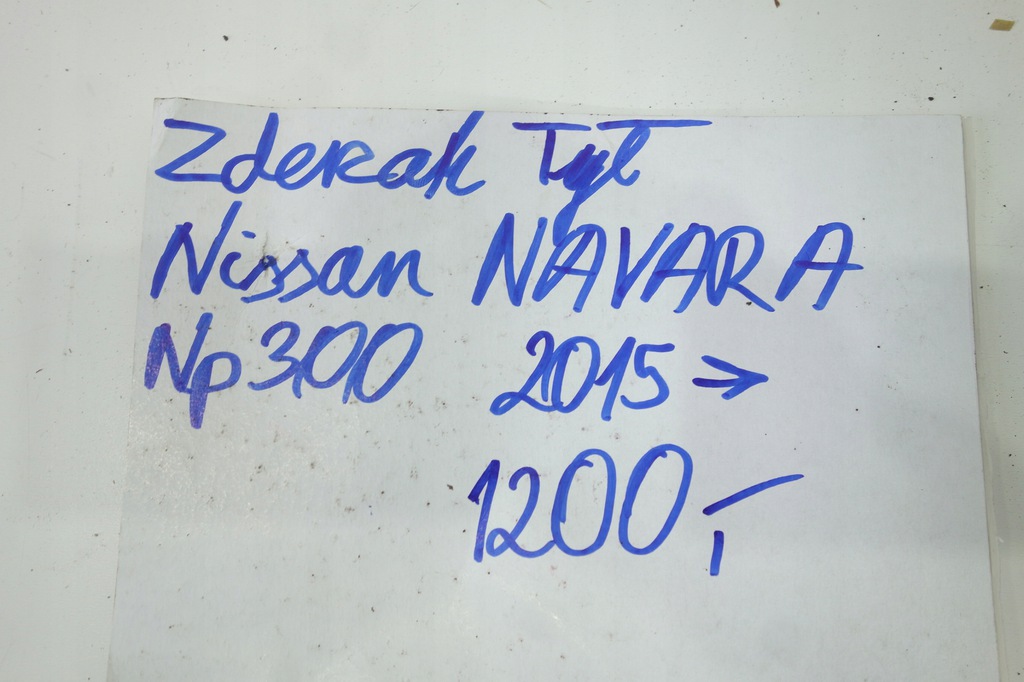 Zderak Tył
Nissan NAVARA
Np300 2015 →
1200,-